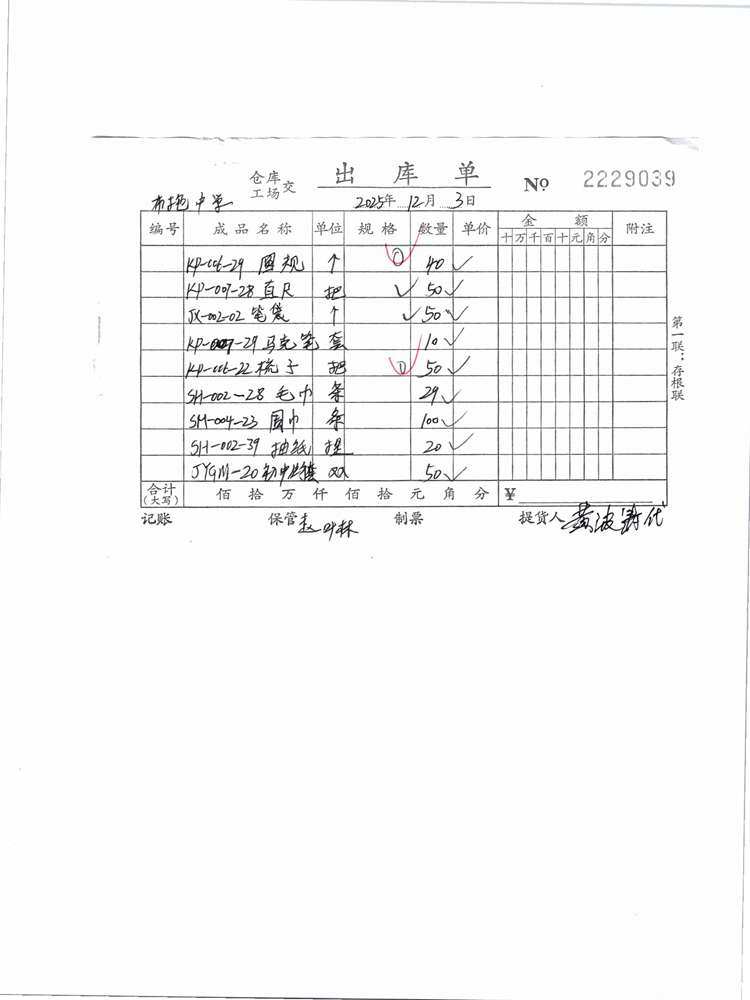 仓库
工场交
出库单
№ 2229039
布拖中学
2025年12月3日
编号 成品名称 单位 规格 数量 单价 金额 附注
十万千百十元角分
KP-006-29 圆规 个 ① 40 ✓
KP-007-28 直尺 把 ✓ 50 ✓
JX-002-02 笔袋 个 ✓ 50 ✓
KP-007-29 马克笔 套 10 ✓
KP-006-22 梳子 把 ① 50 ✓
SH-002-28 毛巾 条 29 ✓
SM-004-23 围巾 条 100 ✓
SH-002-39 抽纸 提 20 ✓
JYGM-20 初中 双 50 ✓
合计(大写) 佰拾万仟佰拾元角分 ¥
记账 保管 赵叶林 制票 提货人 黄波 代
第一联：存根联